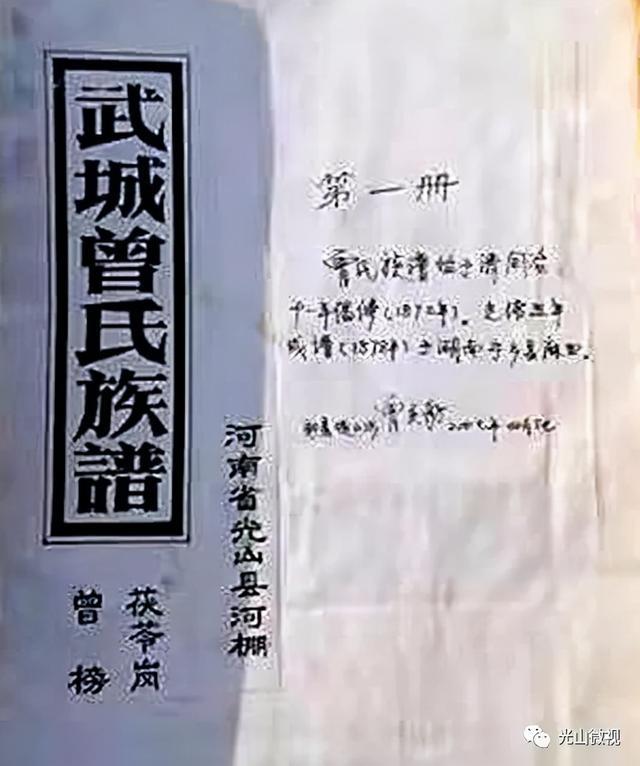 武城曾氏族譜
河南省光山县河棚
茯苓岗
曾榜
第一册
曾氏族谱始于清同治
十一年倡修(1872年)。
成谱(1878年)于湖南宁乡县麻山。
二〇〇七年四月
光山微视